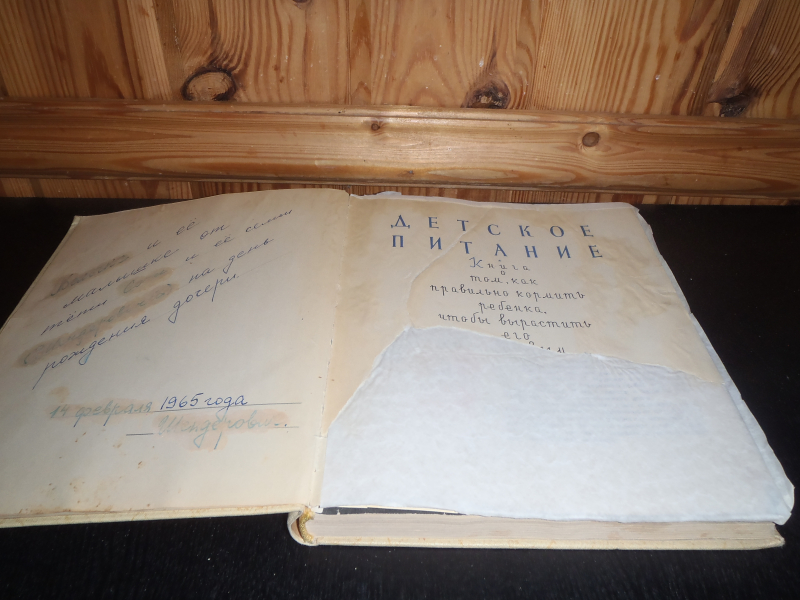 и её
малышке от
тёти и её семьи
на день
рождения дочери
14 февраля 1965 года
ДЕТСКОЕ
ПИТАНИЕ
Книга
о
том, как
правильно кормить
ребенка,
чтобы вырастить
его